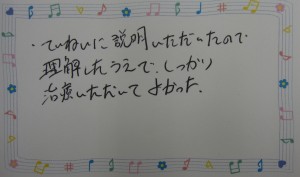 ・ていねいに説明いただいたので
理解したうえで、しっかり
治療いただいてよかった。